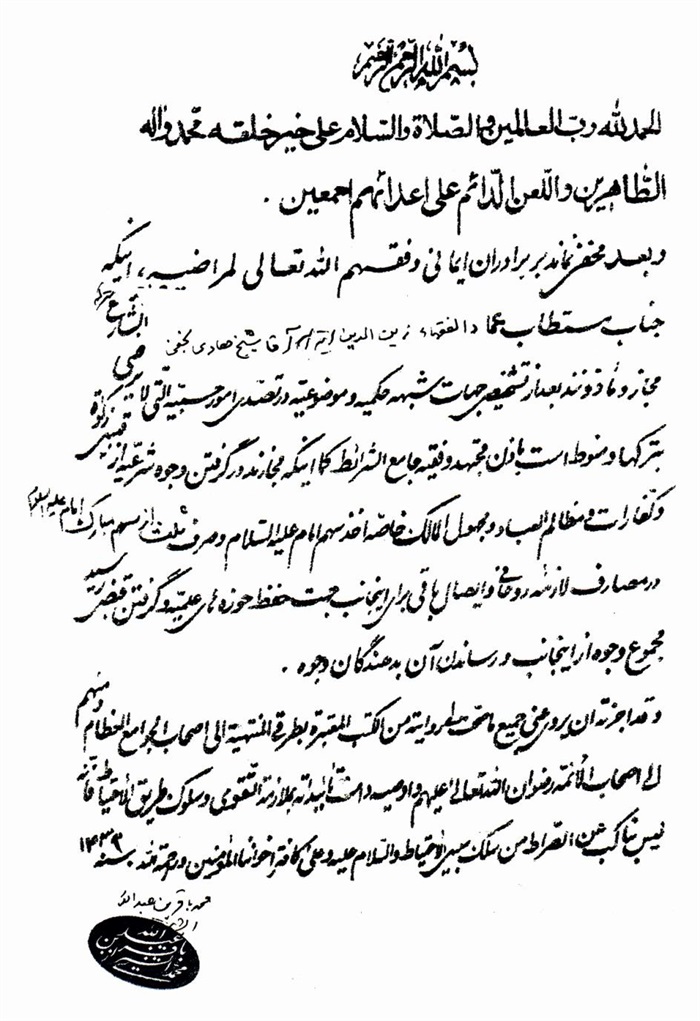 بسم الله الرحمن الرحیم
الحمد لله رب العالمین والصلاة والسلام علی خیر خلقه محمد واله
الطاهرین واللعن الدائم علی اعدائهم اجمعین .
و بعد مخفی نماند بر برادران ایمانی وفقهم الله تعالی لمراضیه، اینکه
جناب مستطاب عماد الفقهاء زین الدین آقا شیخ هادی نجفی
مجاز و مأذونند بعد از تشخیص جهات شبهه حکمیه و موضوعیه در تصدی امور حسبیه التی لا یرضی الشارع
بترکها و منوط است باذن مجتهد و فقیه جامع الشرائط کما اینکه مجازند در گرفتن وجوه شرعیه از قبیل زکوة
و کفارات و مظالم العباد و مجهول المالک خاصة اخذ سهم امام علیه السلام و صرف ثلث از سهم مبارک امام علیه السلام
در مصارف لازمه روحانی و ایصال باقی برای اینجانب جهت حفظ حوزه های علمیه و گرفتن قبض رسید
مجموع وجوه از اینجانب و رساندن آن بدهندگان وجوه .
و قد اجزته ان یروی عنی جمیع ما صحت لی روایته من الکتب المعتبرة بطرقی المنتهیة الی اصحاب الجوامع العظام و منهم
الی اصحاب الأئمة رضوان الله تعالی علیهم و اوصیه دامت تأییداته بملازمة التقوی و سلوک طریق الاحتیاط فانه
لیس بناکب عن الصراط من سلک سبیل الاحتیاط والسلام علیه و علی کافة اخواننا المؤمنین و رحمة الله سنه
محمد باقر بن عبدالله